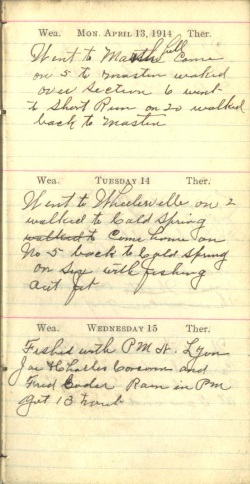 Wea. MON. APRIL 13, 1914 Ther.
Went to Marsh hill Come
on 5 to Masten walked
over Section 6 went
to Short Run on 20 walked
back to Masten
Wea. TUESDAY 14 Ther.
Went to Wheelerville on 2
walked to Cold Spring
walked to Come home on
No 5 back to Cold Spring
on Six with fishing
out fit
Wea. WEDNESDAY 15 Ther.
Fished with PM H. Lyon
Joe & Charles and
Fred Rain in PM
Got 13 trout